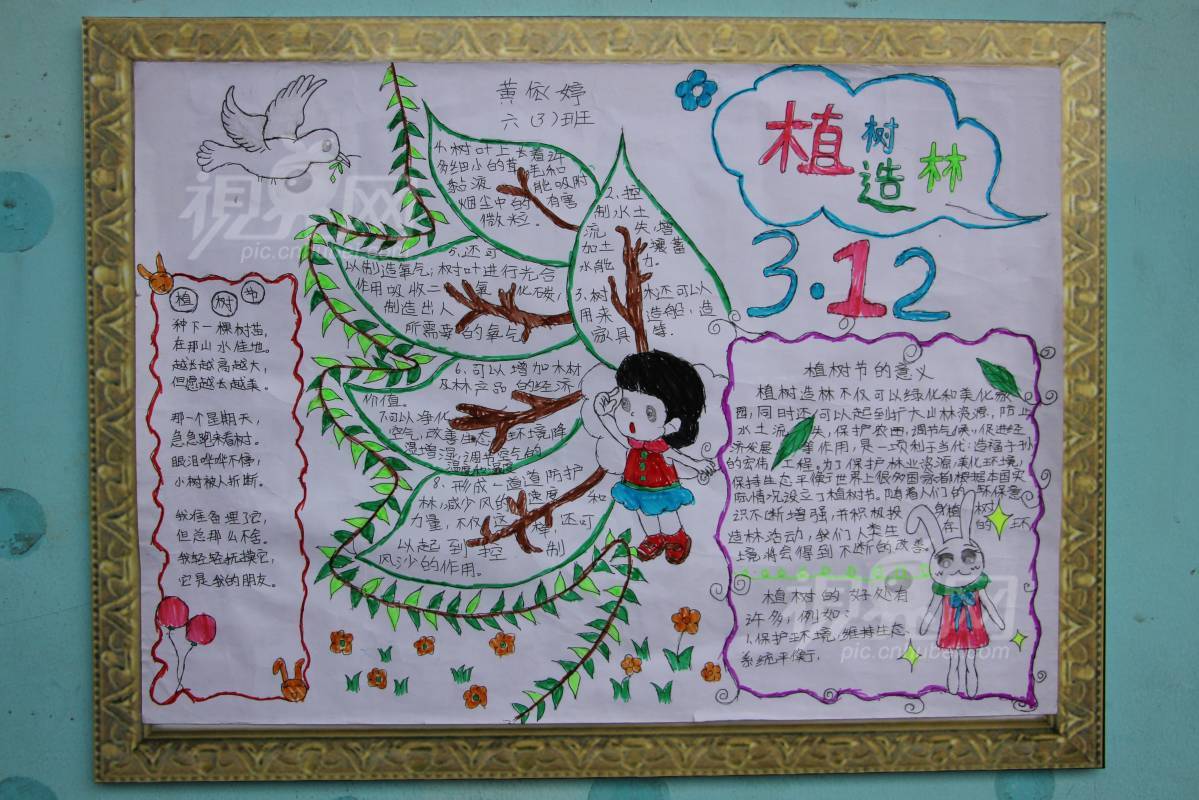 黄依婷
六(3)班
植树造林
3.12
植树节
种下一棵树苗,
在那山水佳地。
越长越高越大,
但愿越长越美。
那一个星期天,
急急跑来看树。
眼泪哗哗不停,
小树被人折断。
我准备埋了它,
但总那么不舍。
我轻轻抚摸它,
它是我的朋友。
4.树叶上长着许
多细小的茸毛和
黏液 能吸附
烟尘中的 有害
微粒。
2.控
制水土
流 失,增
加土 壤蓄
水能 力。
3.树 木还可以
用来 造船,造
家具 等.
5.还可
以制造氧气;树叶进行光合
作用吸收二 氧 化碳,
制造出人
所需要 的氧气
6.可以增加木材
及林产品 的经济
价值。
不可以净化
空气,改善生态 环境,降
温增湿,调节空气的
温度和湿度
8.形成一道道防护
林,减少风的 速度 和
力量,不仅 这 样,还可
以起到控 制
风沙的作用。
植树节的意义
植树造林不仅可以绿化和美化家
园,同时还可以起到扩大山林资源,防止
水土流 失,保护农田,调节气候,促进经
济发展 等作用,是一项利于当代,造福子孙
的宏伟 工程。为了保护林业资源,美化环境,
保持生态平衡,世界上很多国家都根据本国实
际情况设立了植树节。随着人们的 环保意
识不断增强,并积极投 身植 树
造林活动,我们人类生 存 的 环
境将会得到不断的改善。
植树的好处有
许多,例如:
1.保护环境,维持生态
系统平衡,
視界网
pic.cnhubei.com
pic.cnhubei.com